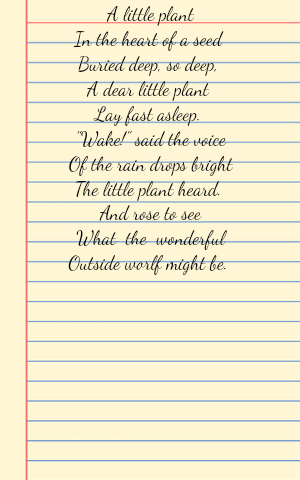 A little plant
In the heart of a seed
Buried deep, so deep,
A dear little plant
Lay fast asleep.
"Wake!" said the voice
Of the rain drops bright
The little plant heard.
And rose to see
What the wonderful
Outside worlf might be.